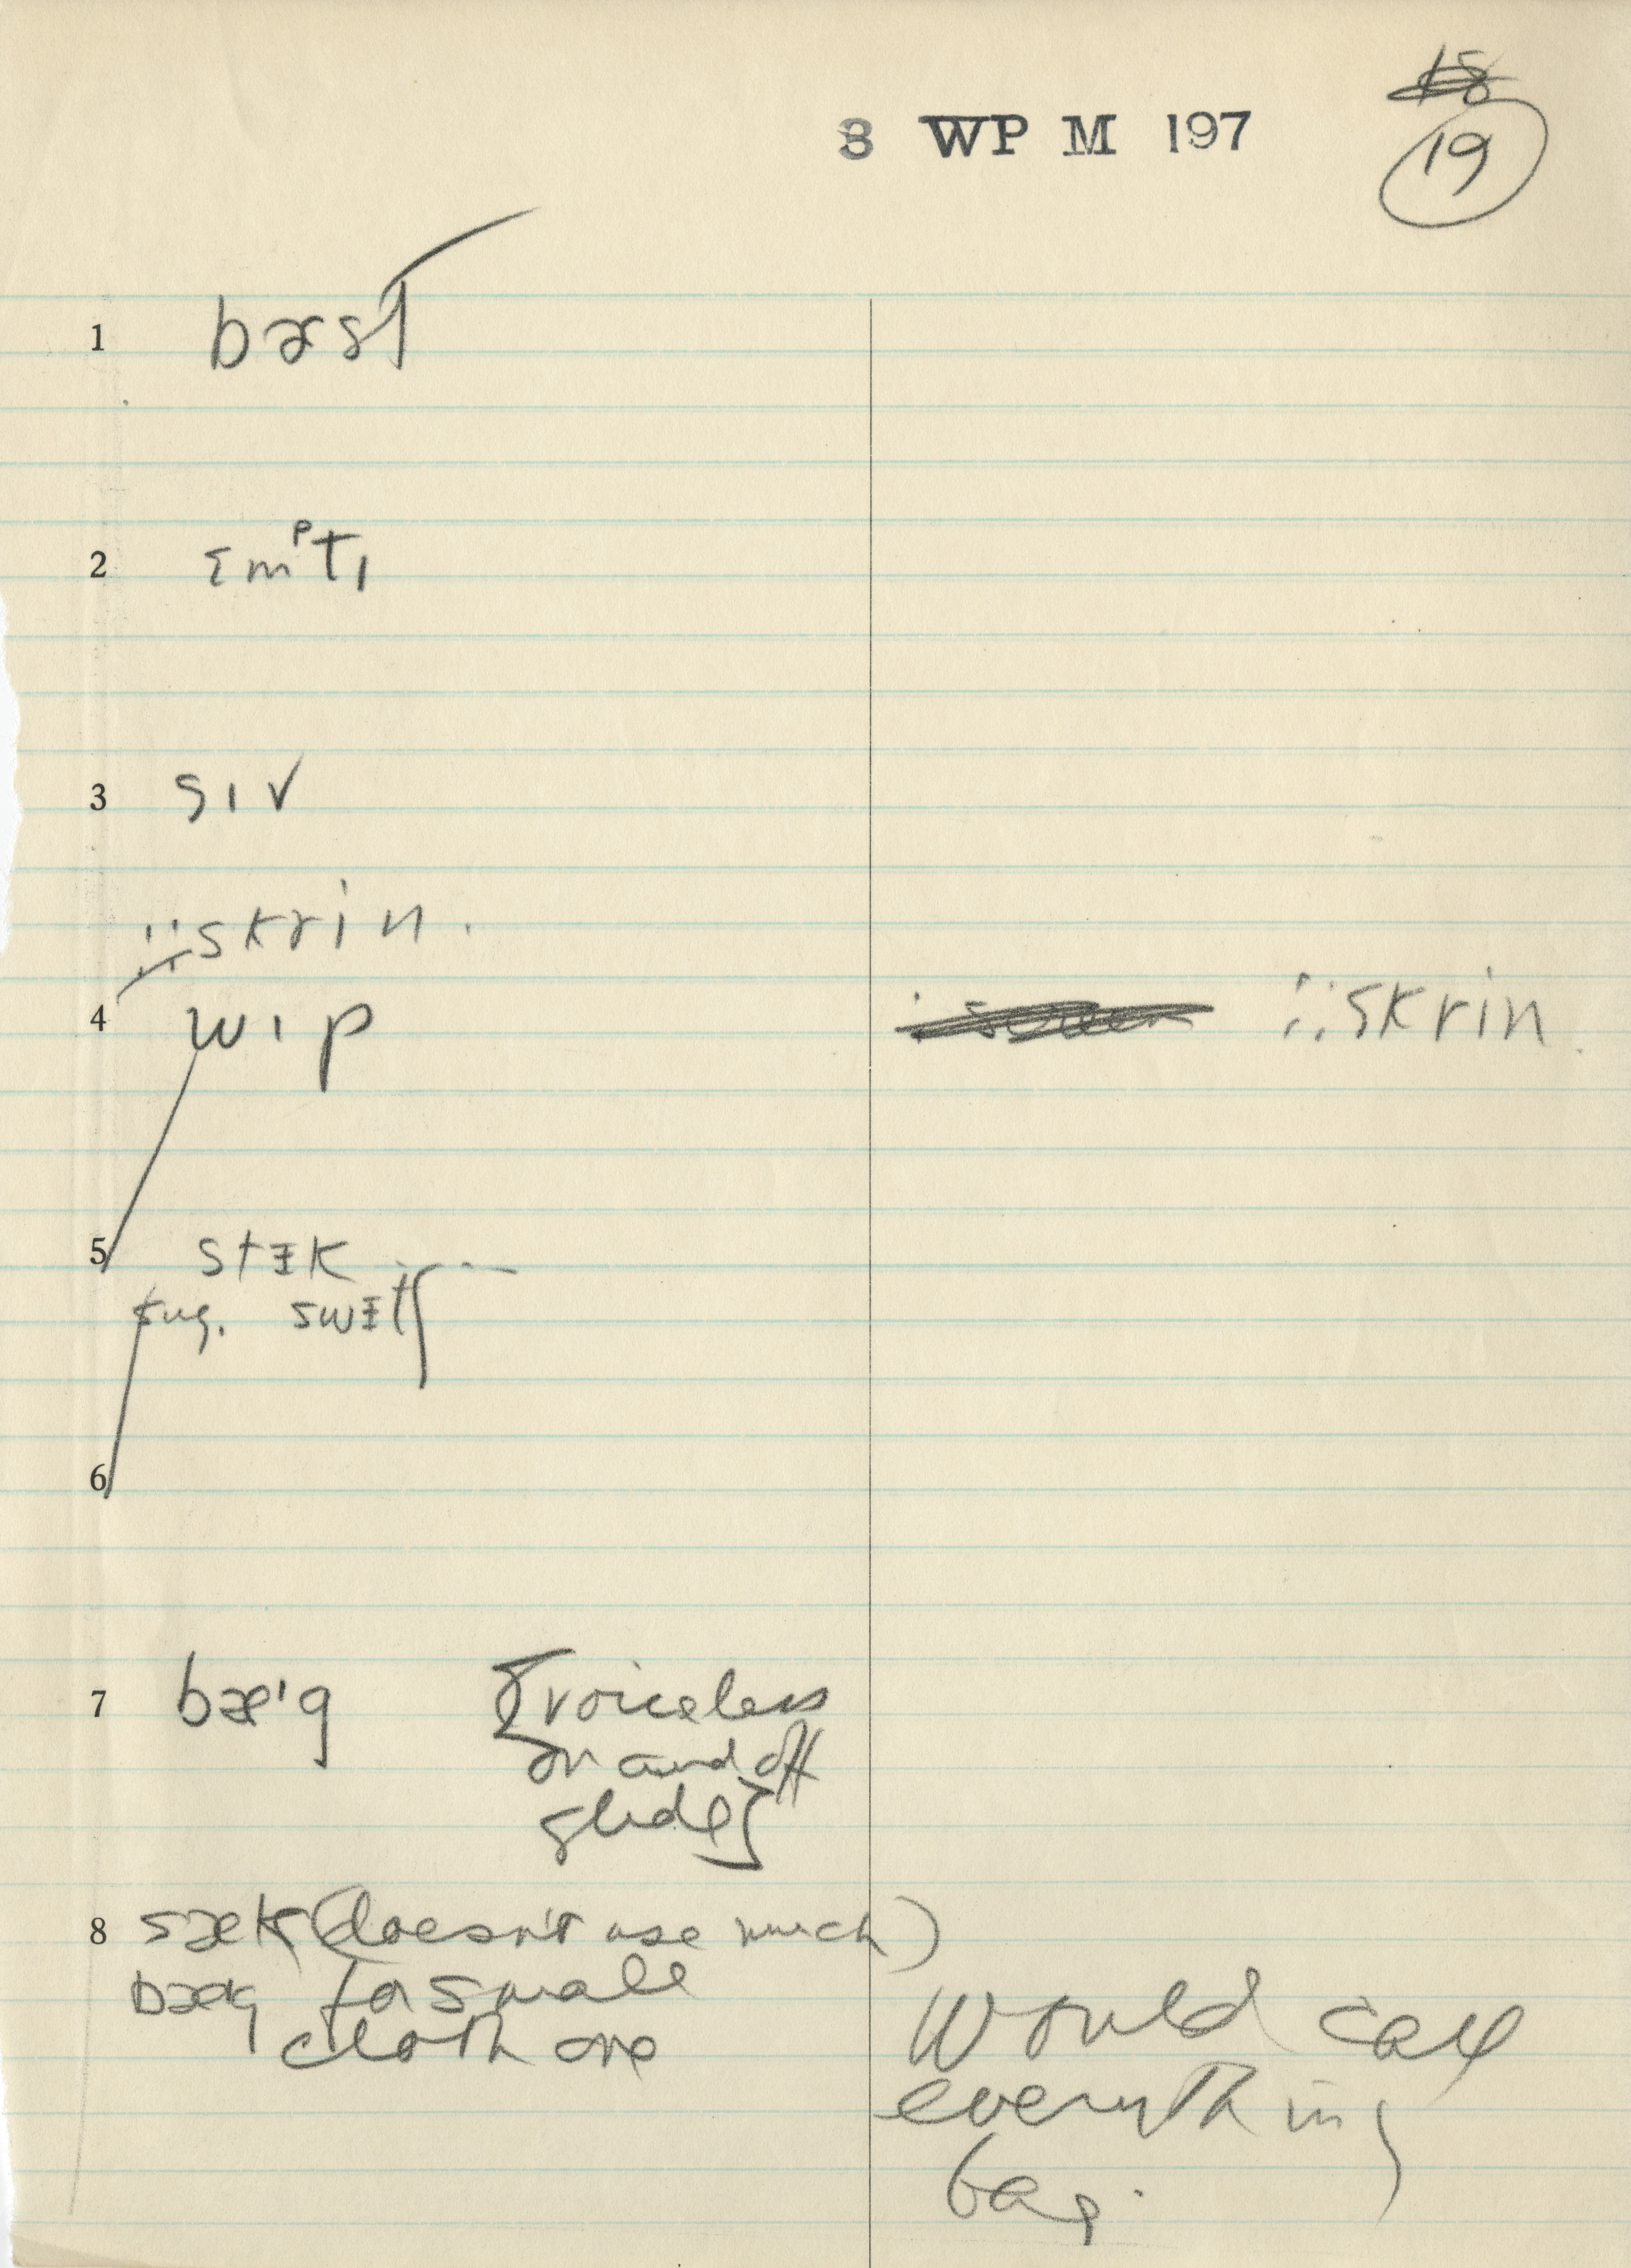 18
3 WP M 197
19
1 bɜst
2 ɛmᵖtɪ
3 sɪv
∵ skrin.
4 wɪp
∵ skrin
5 stɪk
sug. swɪtʃ
6
7 bæᶦg [voiceless
on and off
glide]
8 sæk (doesn't use much)
bæg for small
cloth one
Would call
everything
bag.